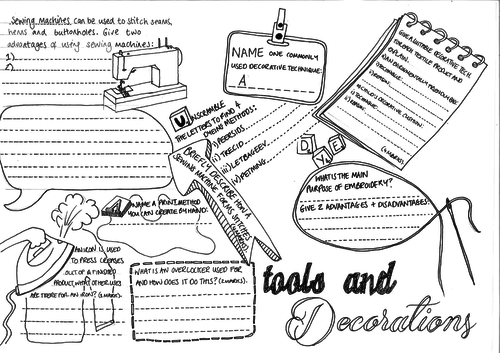 Sewing Machines can be used to stitch seams,
hems and buttonholes. Give two
advantages of using sewing machines:
1)
2)
NAME ONE COMMONLY
USED DECORATIVE TECHNIQUE:
A
GIVE A SUITABLE DECORATIVE TECH.
FOR EACH TEXTILE PRODUCT AND
EXPLAIN.
REASON:
REASON:
(4 MARKS).
UNSCRAMBLE
THE LETTERS TO FIND 4
DYEING METHODS:
i) REERSIDS
ii) TRECID
iii) LETBAGEEV
iv) PETMING
BRIEFLY DESCRIBE HOW A
SEWING MACHINE FORMS STITCHES
DYE
WHAT IS THE MAIN
PURPOSE OF EMBROIDERY?
GIVE 2 ADVANTAGES + DISADVANTAGES:
NAME A PRINT METHOD
YOU CAN CREATE BY HAND:
AN IRON IS USED
TO PRESS CREASES
OUT OF A FINISHED
PRODUCT, WHAT OTHER USES
ARE THERE FOR AN IRON?
WHAT IS AN OVERLOCKER USED FOR
AND HOW DOES IT DO THIS? (2 MARKS).
tools and
Decorations